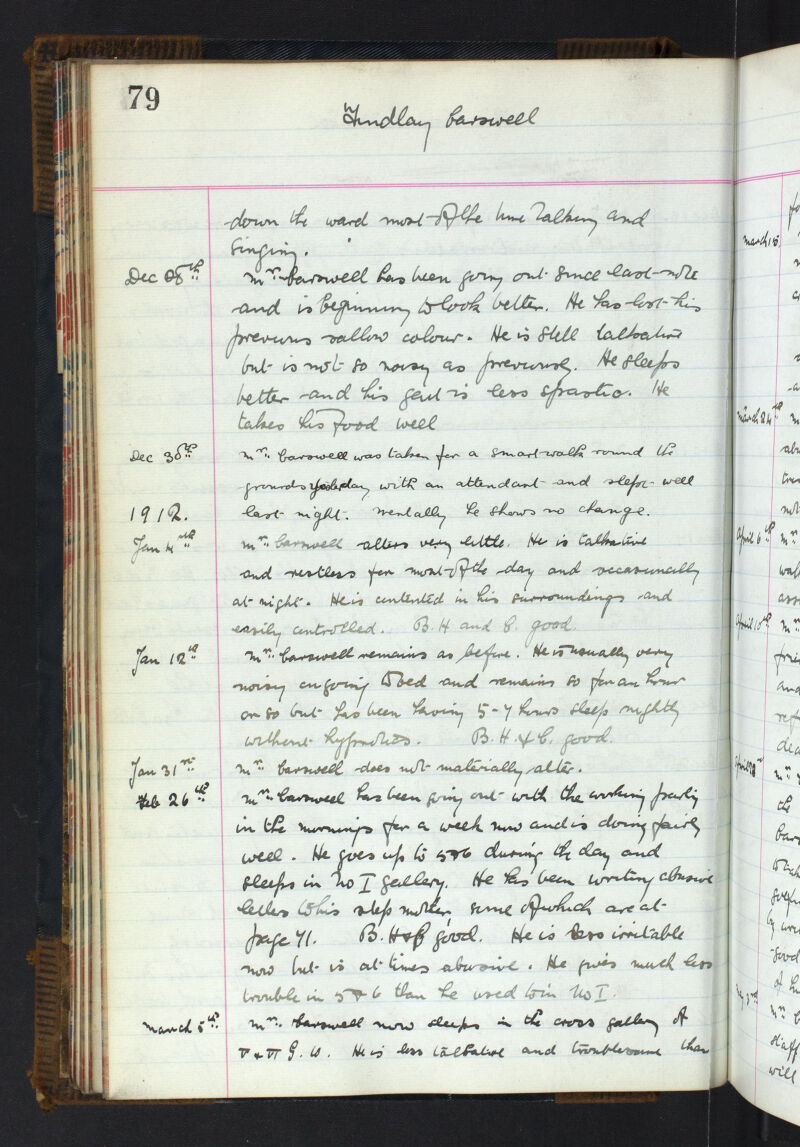 79
Findlay Carswell
down the ward most of the time talking and
singing.
Dec 08th Mr. Carswell has been going out since last note
and is beginning to look better. He has lost his
previous sallow colour. He is still talkative
but is not so noisy as previously. He sleeps
better and his gait is less spastic. He
takes his food well
Dec 30th Mr. Carswell was taken for a smart walk round the
grounds yesterday with an attendant and slept well
1912. last night. Mentally he shows no change.
Jan 4th Mr. Carswell alters very little. He is talkative
and restless for most of the day and occasionally
at night. He is contented in his surroundings and
easily controlled. B.H and C. good
Jan 12th Mr. Carswell remains as before. He is usually very
noisy on going to bed and remains so for an hour
or so but has been having 5-7 hours sleep nightly
without hypnotics. B.H. & C. good.
Jan 31st Mr. Carswell does not materially alter.
Feb 26th Mr. Carswell has been going out with the working party
in the mornings for a week now and is doing fairly
well. He goes up to 5 & 6 during the day and
sleeps in No I gallery. He has been writing abusive
letters to his step mother, some of which are at
page 71. B.H & C good. He is less irritable
now but is at times abusive. He gives much less
trouble in 5 & 6 than he used to in No I.
March 5th Mr. Carswell now sleeps in the cross gallery of
V & VI G. W. He is less talkative and troublesome than
March 15
March 24th
April 6th
April 10th